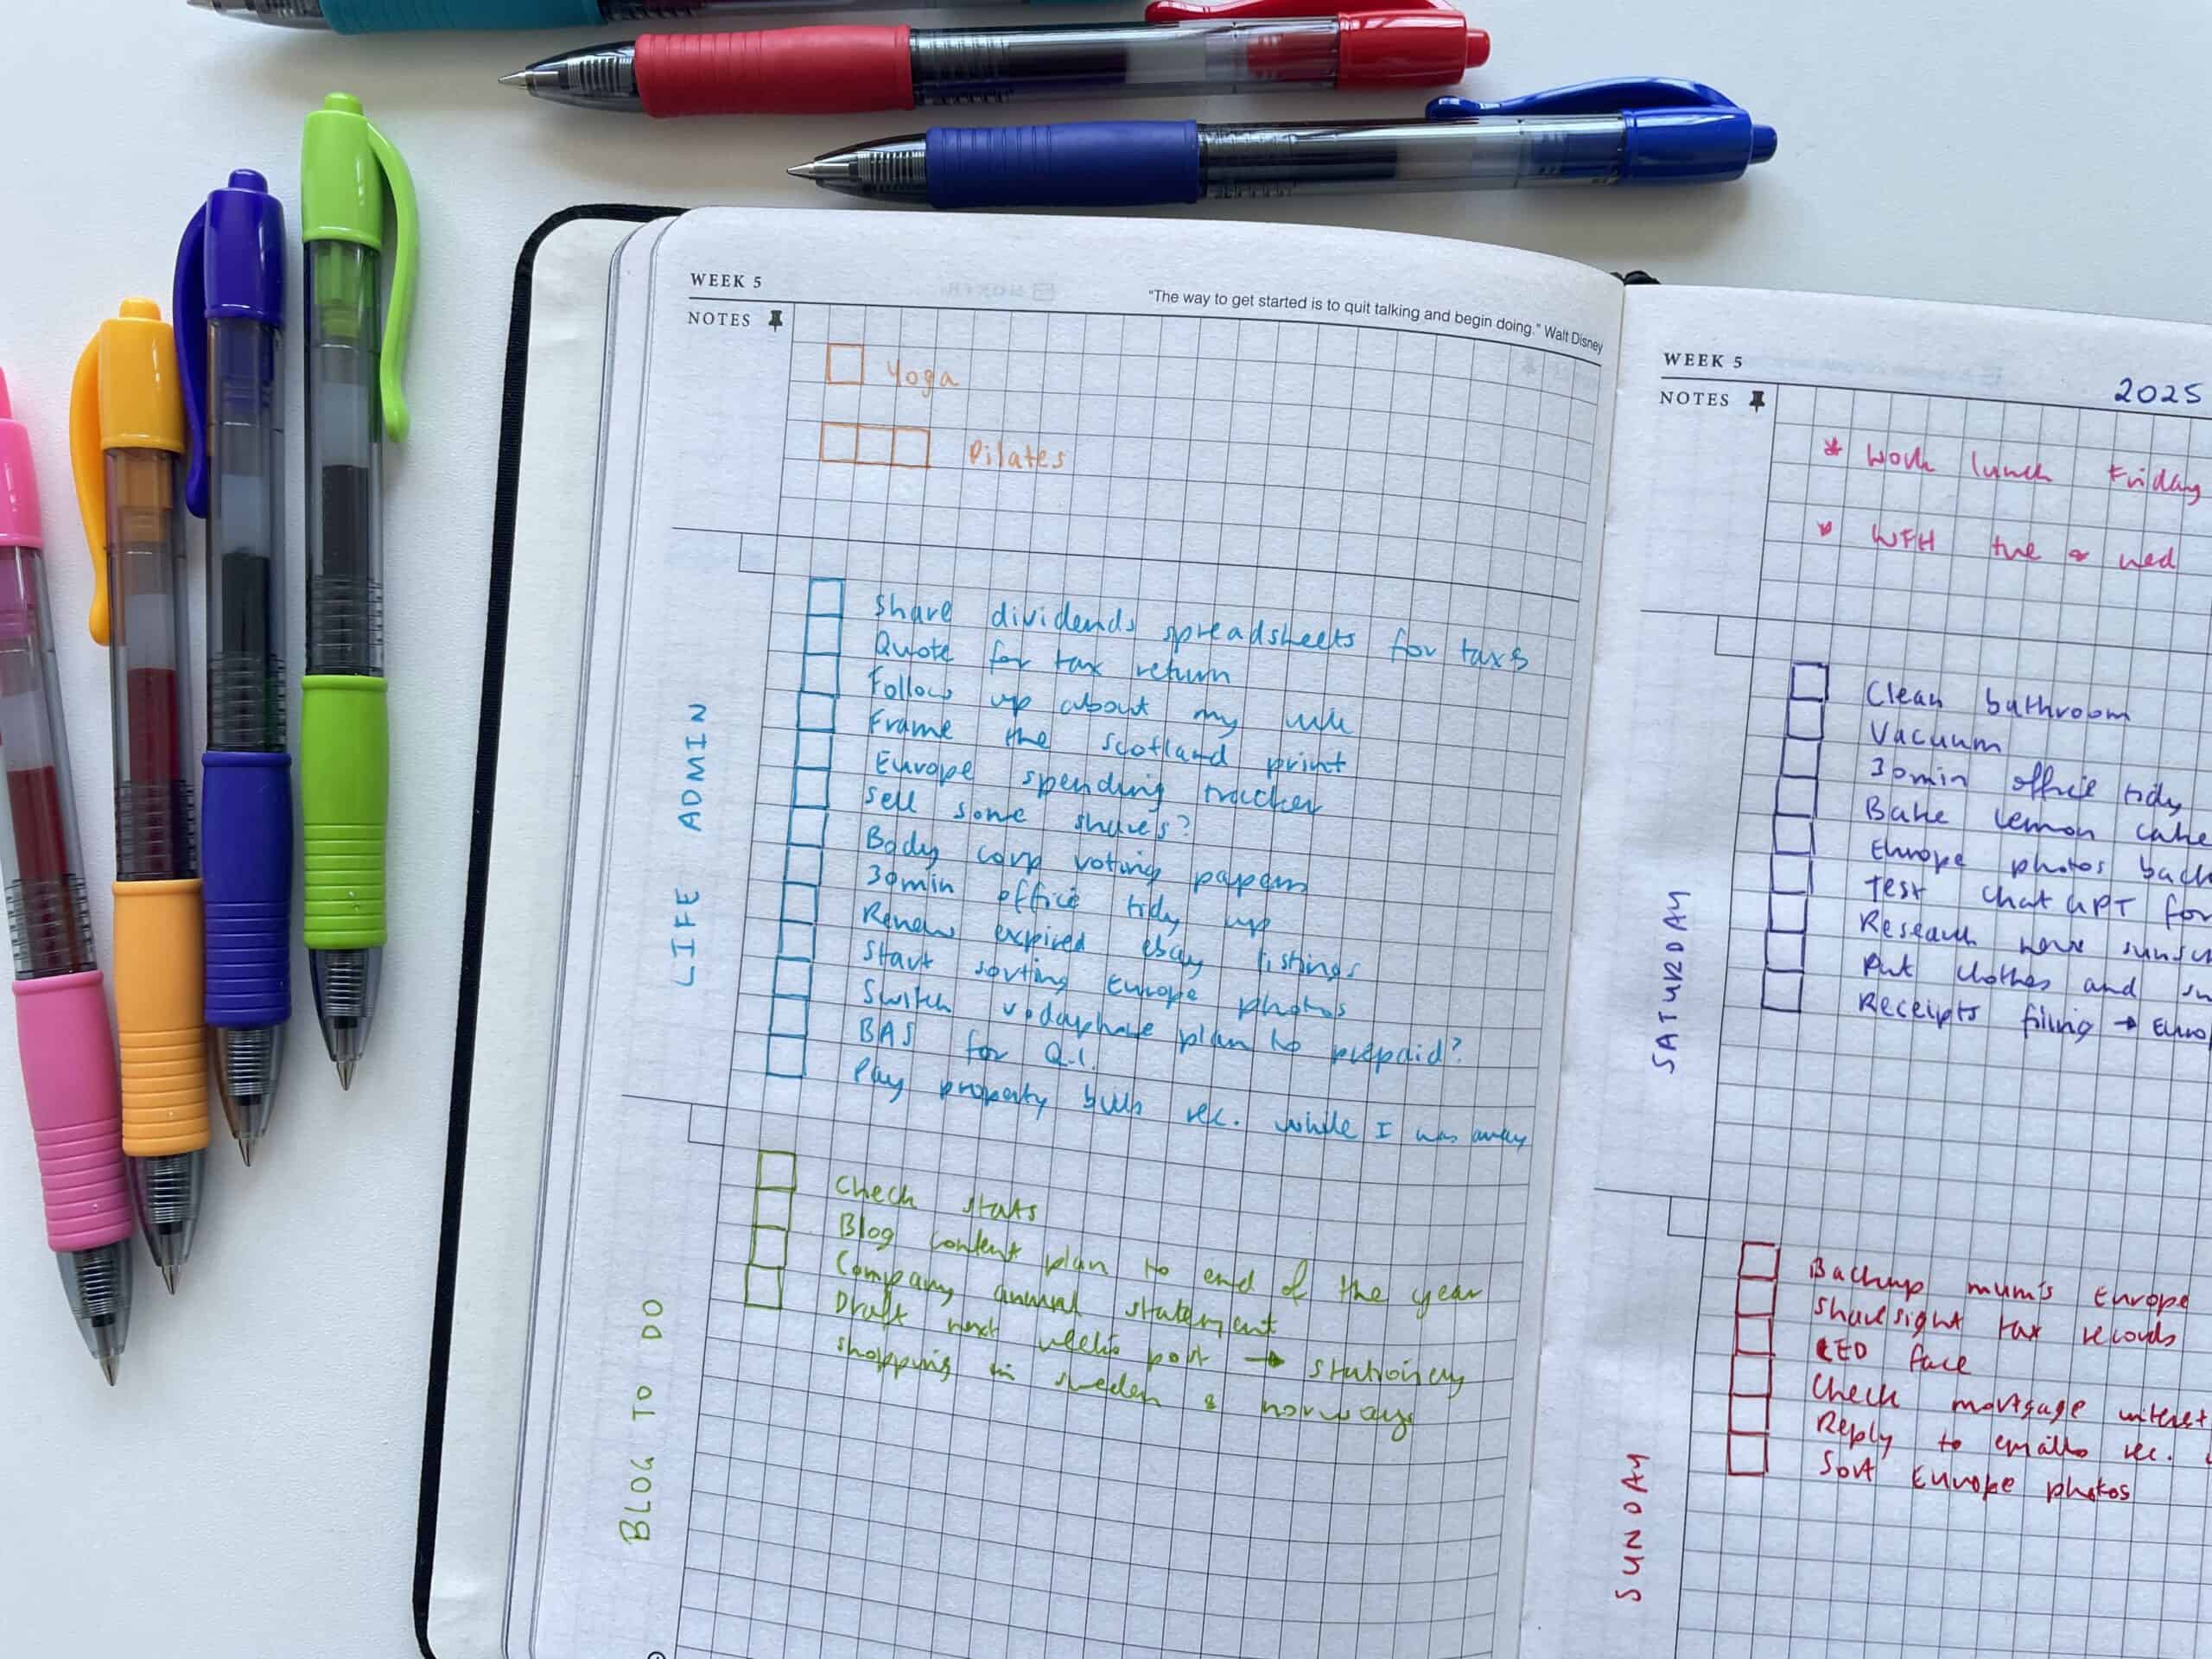 WEEK 5
"The way to get started is to quit talking and begin doing." Walt Disney
NOTES
Yoga
Pilates
LIFE ADMIN
Share dividends spreadsheets for taxs
Quote for tax return
Follow up about my
Frame the Scotland print
Europe spending tracker
Sell some shares?
Body corp voting papers
30min office tidy up
Renew expired ebay listings
Start sorting Europe photos
Switch vodaphone plan to prepaid?
BAS for Q.1.
Pay property bills rec. while I was away
BLOG TO DO
Check stats
Blog content plan to end of the year
Company annual statement
Draft next week's post → stationery
shopping in sweden & norway
WEEK 5
2025
NOTES
* Work lunch Friday
* WFH tue & wed
SATURDAY
Clean bathroom
Vacuum
30min office tidy
Bake lemon cake
Europe photos back
Test Chat GPT for
Research more
Put clothes and
Receipts filing → Euro
SUNDAY
Backup mum's Europe
Sharesight tax records
LED face
Check mortgage interest
Reply to emails rec.
Sort Europe photos